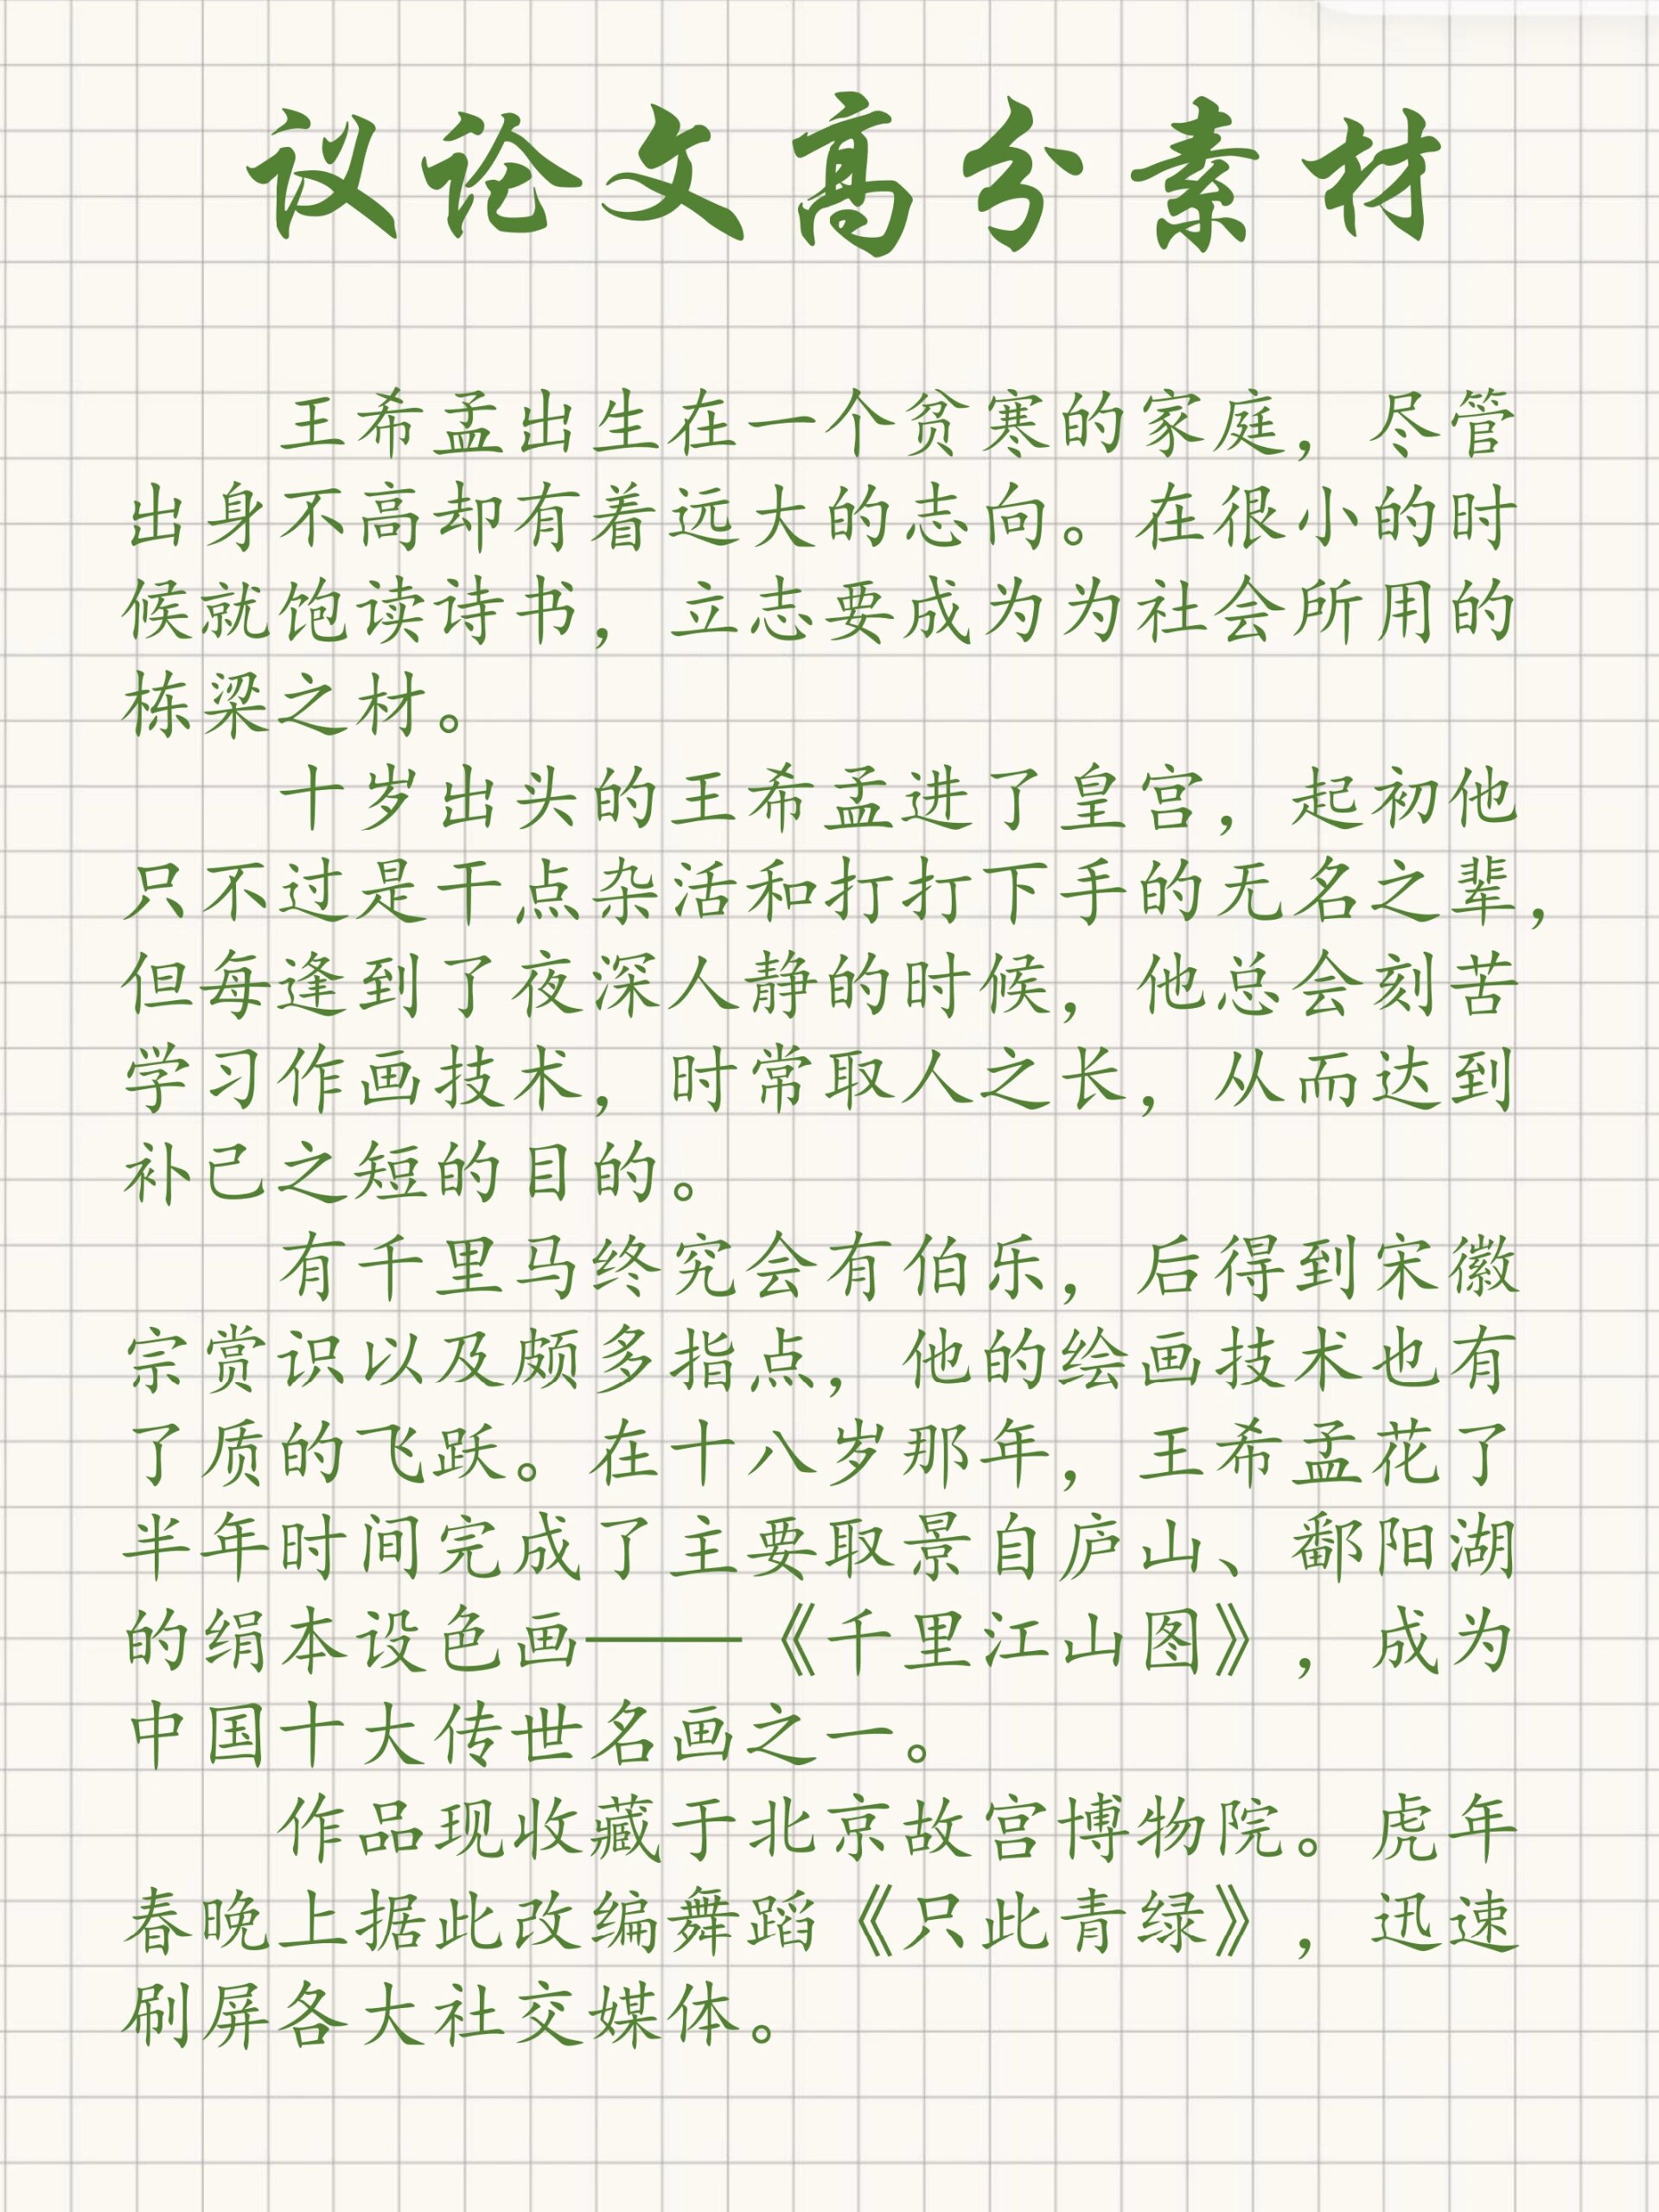 议论文高分素材
王希孟出生在一个贫寒的家庭，尽管
出身不高却有着远大的志向。在很小的时
候就饱读诗书，立志要成为为社会所用的
栋梁之材。
十岁出头的王希孟进了皇宫，起初他
只不过是干点杂活和打打下手的无名之辈，
但每逢到了夜深人静的时候，他总会刻苦
学习作画技术，时常取人之长，从而达到
补己之短的目的。
有千里马终究会有伯乐，后得到宋徽
宗赏识以及颇多指点，他的绘画技术也有
了质的飞跃。在十八岁那年，王希孟花了
半年时间完成了主要取景自庐山、鄱阳湖
的绢本设色画——《千里江山图》，成为
中国十大传世名画之一。
作品现收藏于北京故宫博物院。虎年
春晚上据此改编舞蹈《只此青绿》，迅速
刷屏各大社交媒体。